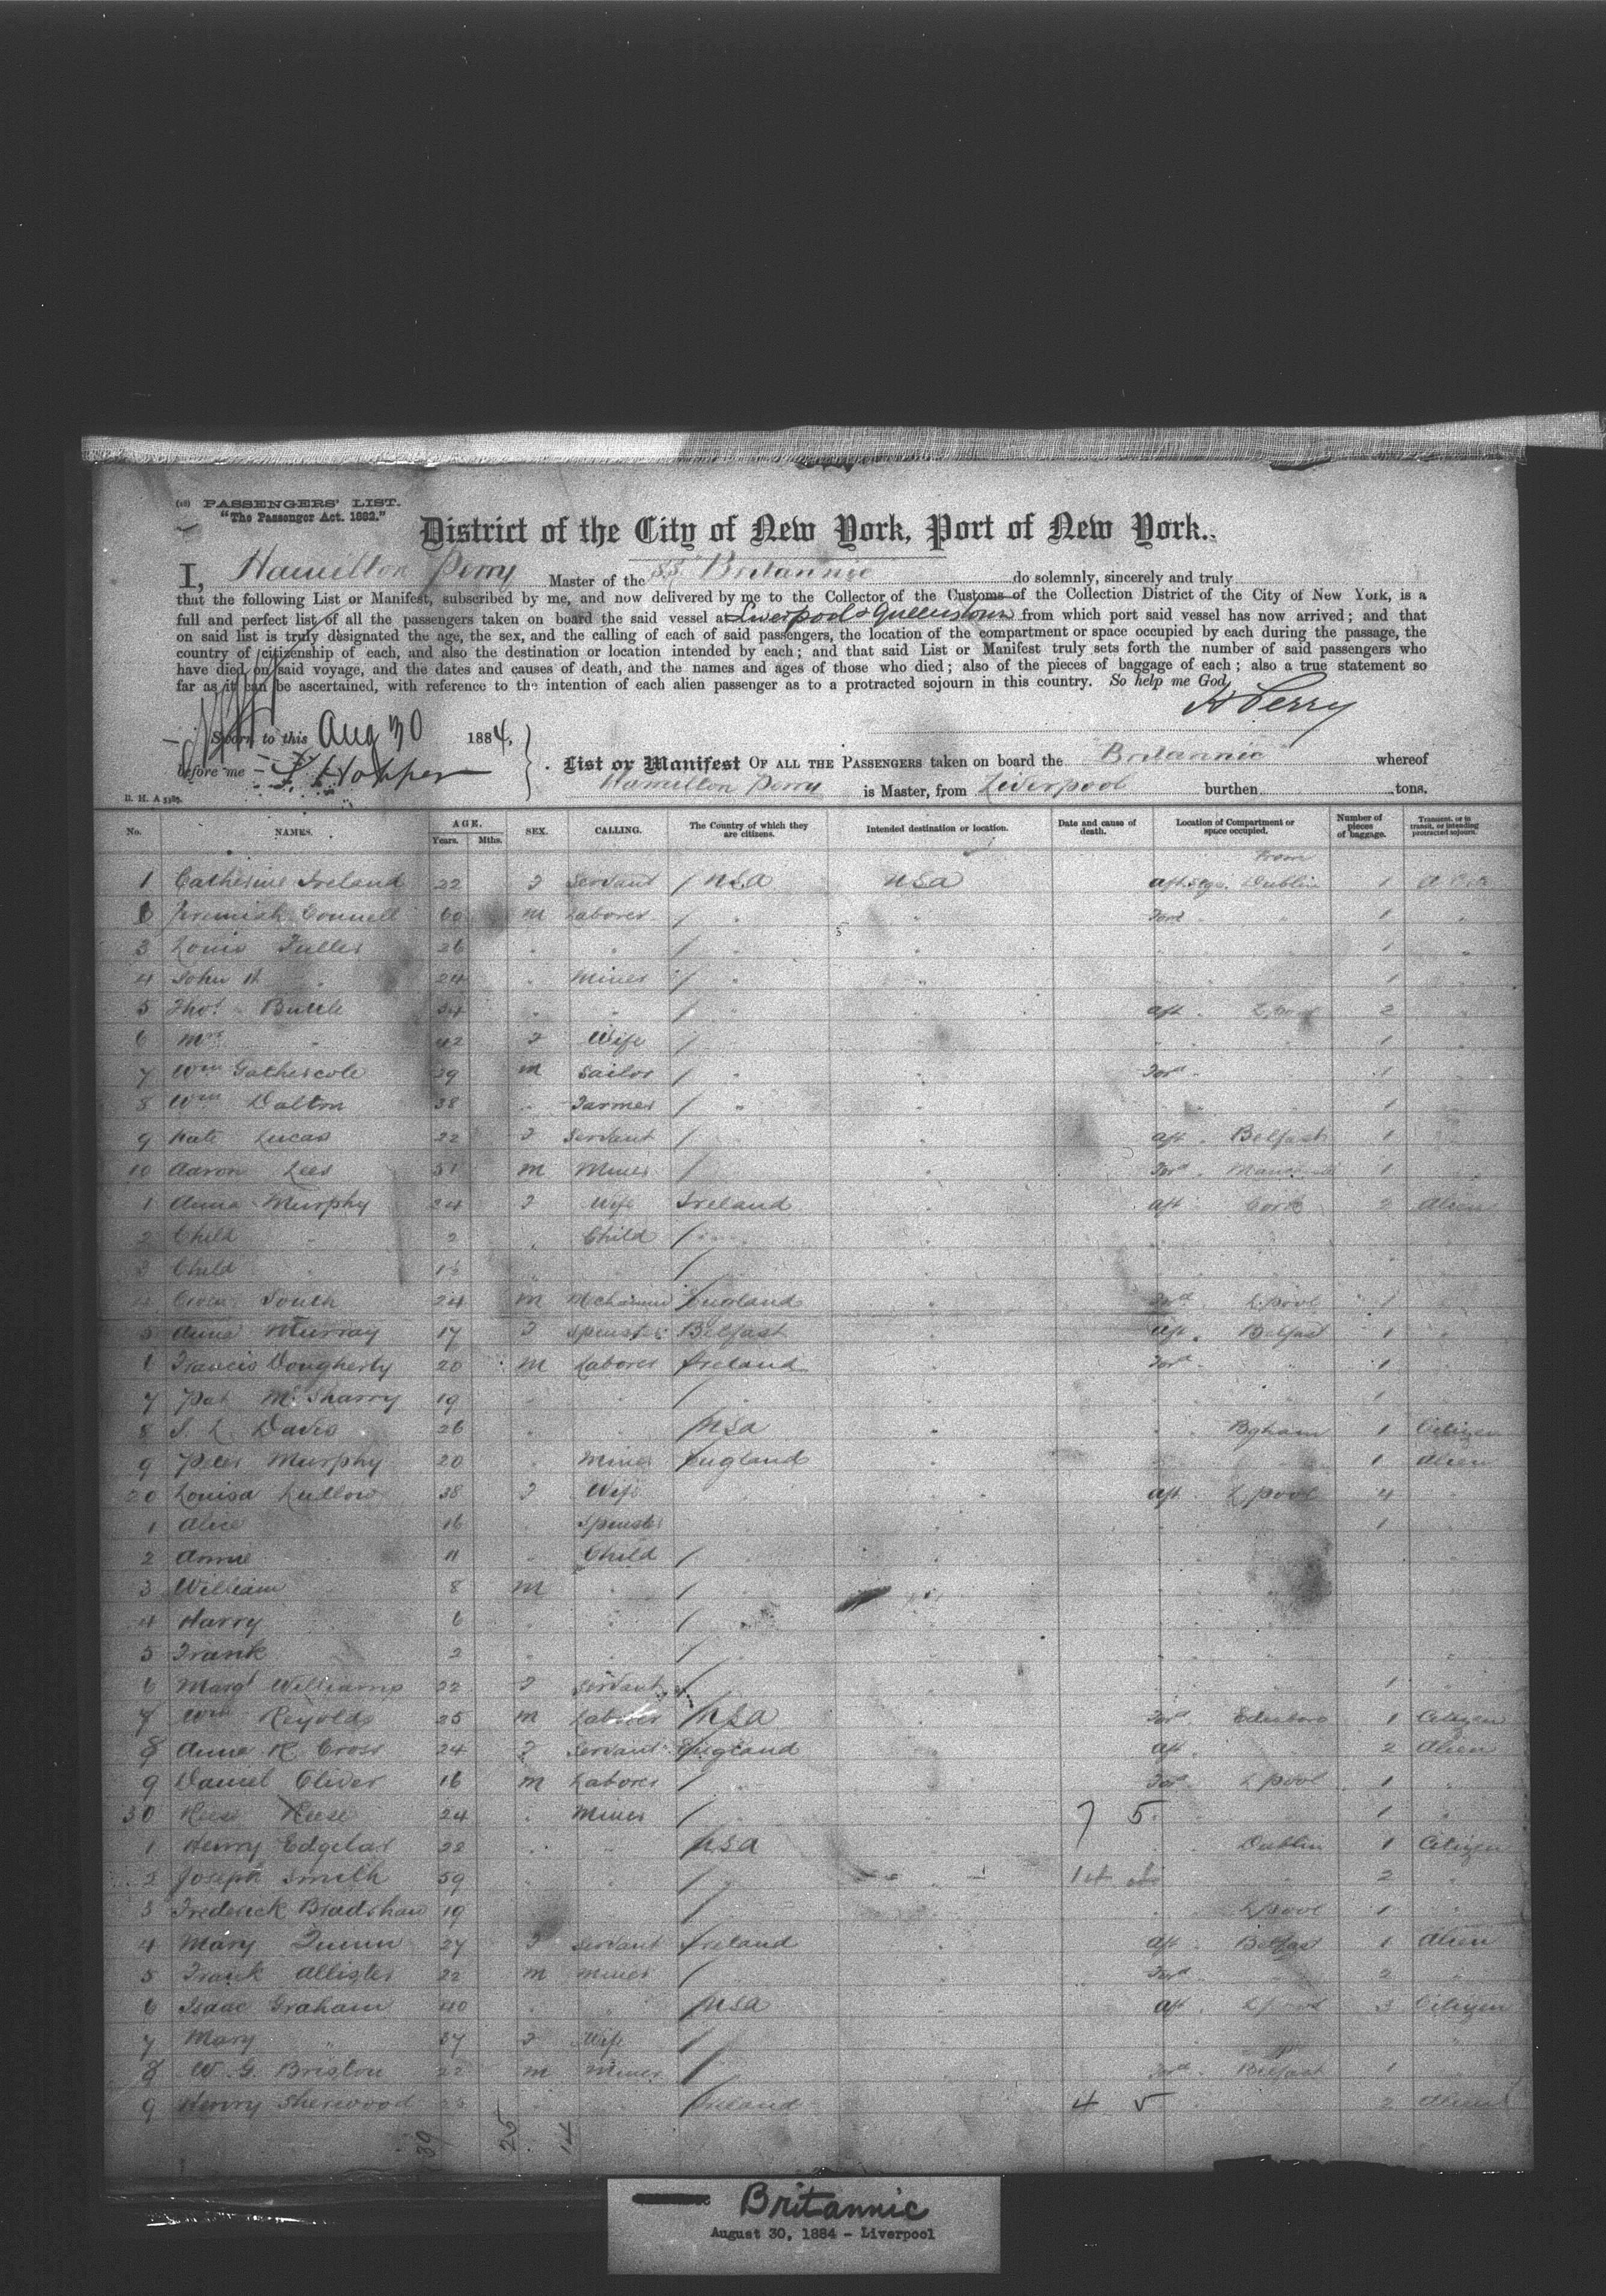 (18) PASSENGERS' LIST.
"The Passenger Act. 1882."
District of the City of New York, Port of New York.
I, Hamilton Perry Master of the SS Britannic do solemnly, sincerely and truly
that the following List or Manifest, subscribed by me, and now delivered by me to the Collector of the Customs of the Collection District of the City of New York, is a
full and perfect list of all the passengers taken on board the said vessel at Liverpool & Queenstown from which port said vessel has now arrived; and that
on said list is truly designated the age, the sex, and the calling of each of said passengers, the location of the compartment or space occupied by each during the passage, the
country of citizenship of each, and also the destination or location intended by each; and that said List or Manifest truly sets forth the number of said passengers who
have died on said voyage, and the dates and causes of death, and the names and ages of those who died; also of the pieces of baggage of each; also a true statement so
far as it can be ascertained, with reference to the intention of each alien passenger as to a protracted sojourn in this country. So help me God,
H Perry
Sworn to this Aug 30 1884,
before me F. Hopper
List or Manifest OF ALL THE PASSENGERS taken on board the Britannic whereof
Hamilton Perry is Master, from Liverpool burthen tons.
No. NAMES. AGE. Years. Mths. SEX. CALLING. The Country of which they are citizens. Intended destination or location. Date and cause of death. Location of Compartment or space occupied. Number of pieces of baggage. Transient, or in transit, or intending protracted sojourn.
From
1 Catherine Ireland 22 F Servant / USA USA aft Dublin 1
Jeremiah Connell 60 M Laborer / " " Ford 1 "
3 Louis Fuller 26 " " / " 1 "
4 John H " 24 " Miner / " " 1
5 Thos Buttle 34 " " / " aft L'pool 2
6 Mrs " 42 F Wife / 1
7 Wm Gathercole 29 M Sailor / " Ford 1
8 Wm Dalton 38 " Farmer / " 1
9 Kate Lucas 22 F Servant / aft Belfast 1
10 Aaron Lees 31 M Miner / Ford 1
1 Anna Murphy 24 F Wife Ireland aft Cork 2 Alien
2 Child " 2 " Child / "
3 Child " /
4 South 24 M England Ford L'pool 1
5 Anna Murray 17 F Spinster Belfast aft Belfast 1 "
6 Francis Dougherty 20 M Laborer Ireland Ford " 1
7 Pat McSharry 19 " " / 1
8 S. L. Davis 26 " / USA " B'gham 1 Citizen
9 Peter Murphy 20 " Miner / England 1 Alien
20 Louisa Ludlow 38 F Wife " aft L'pool 4 "
1 Alice 16 " Spinster 1
2 Annie 11 " Child /
3 William 8 M " /
4 Harry 6 " " /
5 Frank 2 " " /
6 Margt Williams 22 F Servant / 1 "
7 Wm Reyolds 25 M Laborer / USA Ford 1 Citizen
8 Anna R. Cross 24 F Servant England aft 2 Alien
9 Daniel Oliver 16 M Laborer / Ford L'pool 1 "
30 Rees Reese 24 " Miner / 7 5 1 "
1 Henry Edgelar 22 " " / USA Dublin 1 Citizen
2 Joseph Smith 59 " " / 14 2 "
3 Frederick Bradshaw 19 / L'pool 1 "
4 Mary Quinn 27 F Servant Ireland aft Belfast 1 Alien
5 Frank Allister 22 M Miner / Ford " 2 "
6 Isaac Graham 40 " " / USA aft L'pool 3 Citizen
7 Mary " 37 F Wife /
8 W. G. Bristow 22 M Miner / Ford Belfast 1
9 Henry Sherwood " " / Ireland 4 5 2 Alien
39 25 14
Britannic
August 30, 1884 - Liverpool